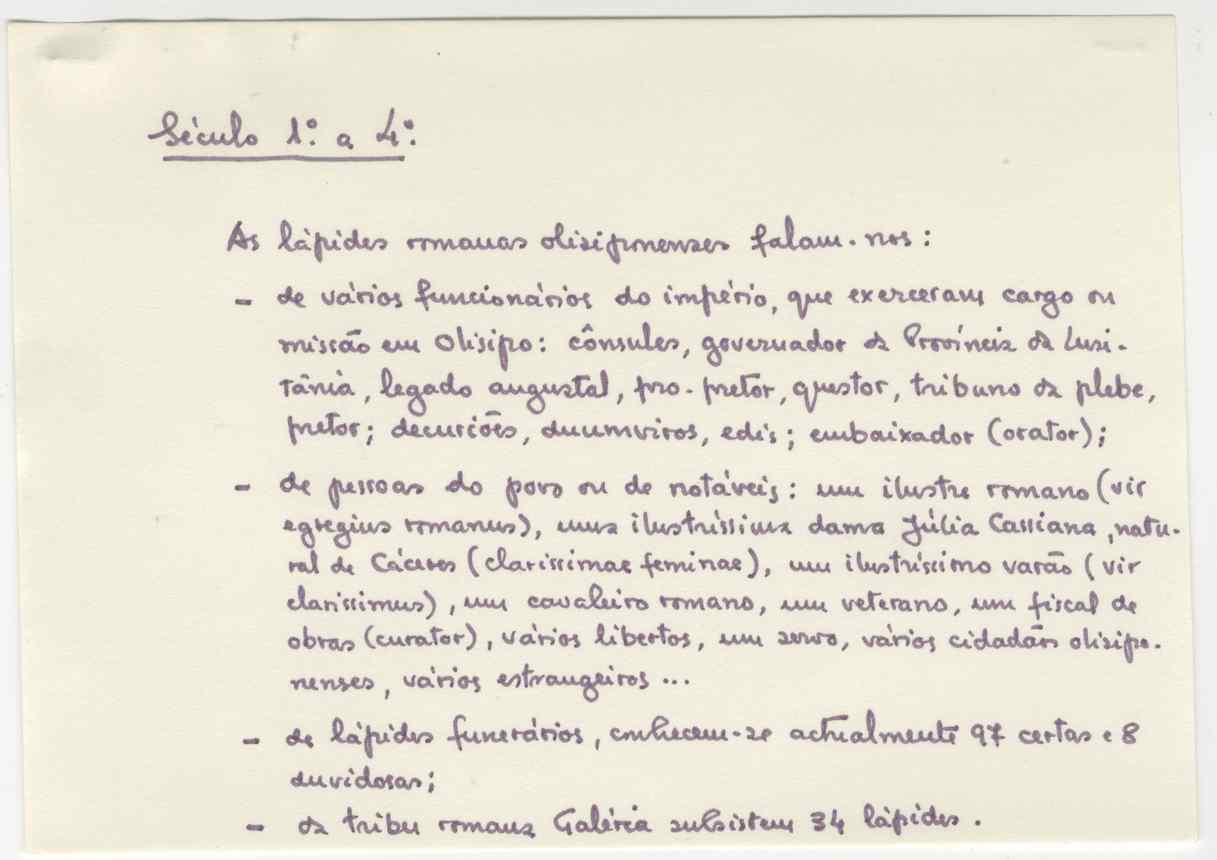 Século 1º. a 4º.
As lápides romanas olisiponenses falam-nos:
- de vários funcionários do império, que exerceram cargo ou
missão em Olisipo: cônsules, governador da Província da Lusi-
tânia, legado augustal, pro-pretor, questor, tribuno da plebe,
pretor; decuriões, duumviros, edis; embaixador (orator);
- de pessoas do povo ou de notáveis: um ilustre romano (vir
egregius romanus), uma ilustríssima dama Júlia Cassiana, natu-
ral de Cáceres (clarissimae feminae), um ilustríssimo varão (vir
clarissimus), um cavaleiro romano, um veterano, um fiscal de
obras (curator), vários libertos, um servo, vários cidadãos olisipo-
nenses, vários estrangeiros ...
- de lápides funerários, conhecem-se actualmente 97 certas e 8
duvidosas;
- da tribu romana Galéria subsistem 34 lápides.